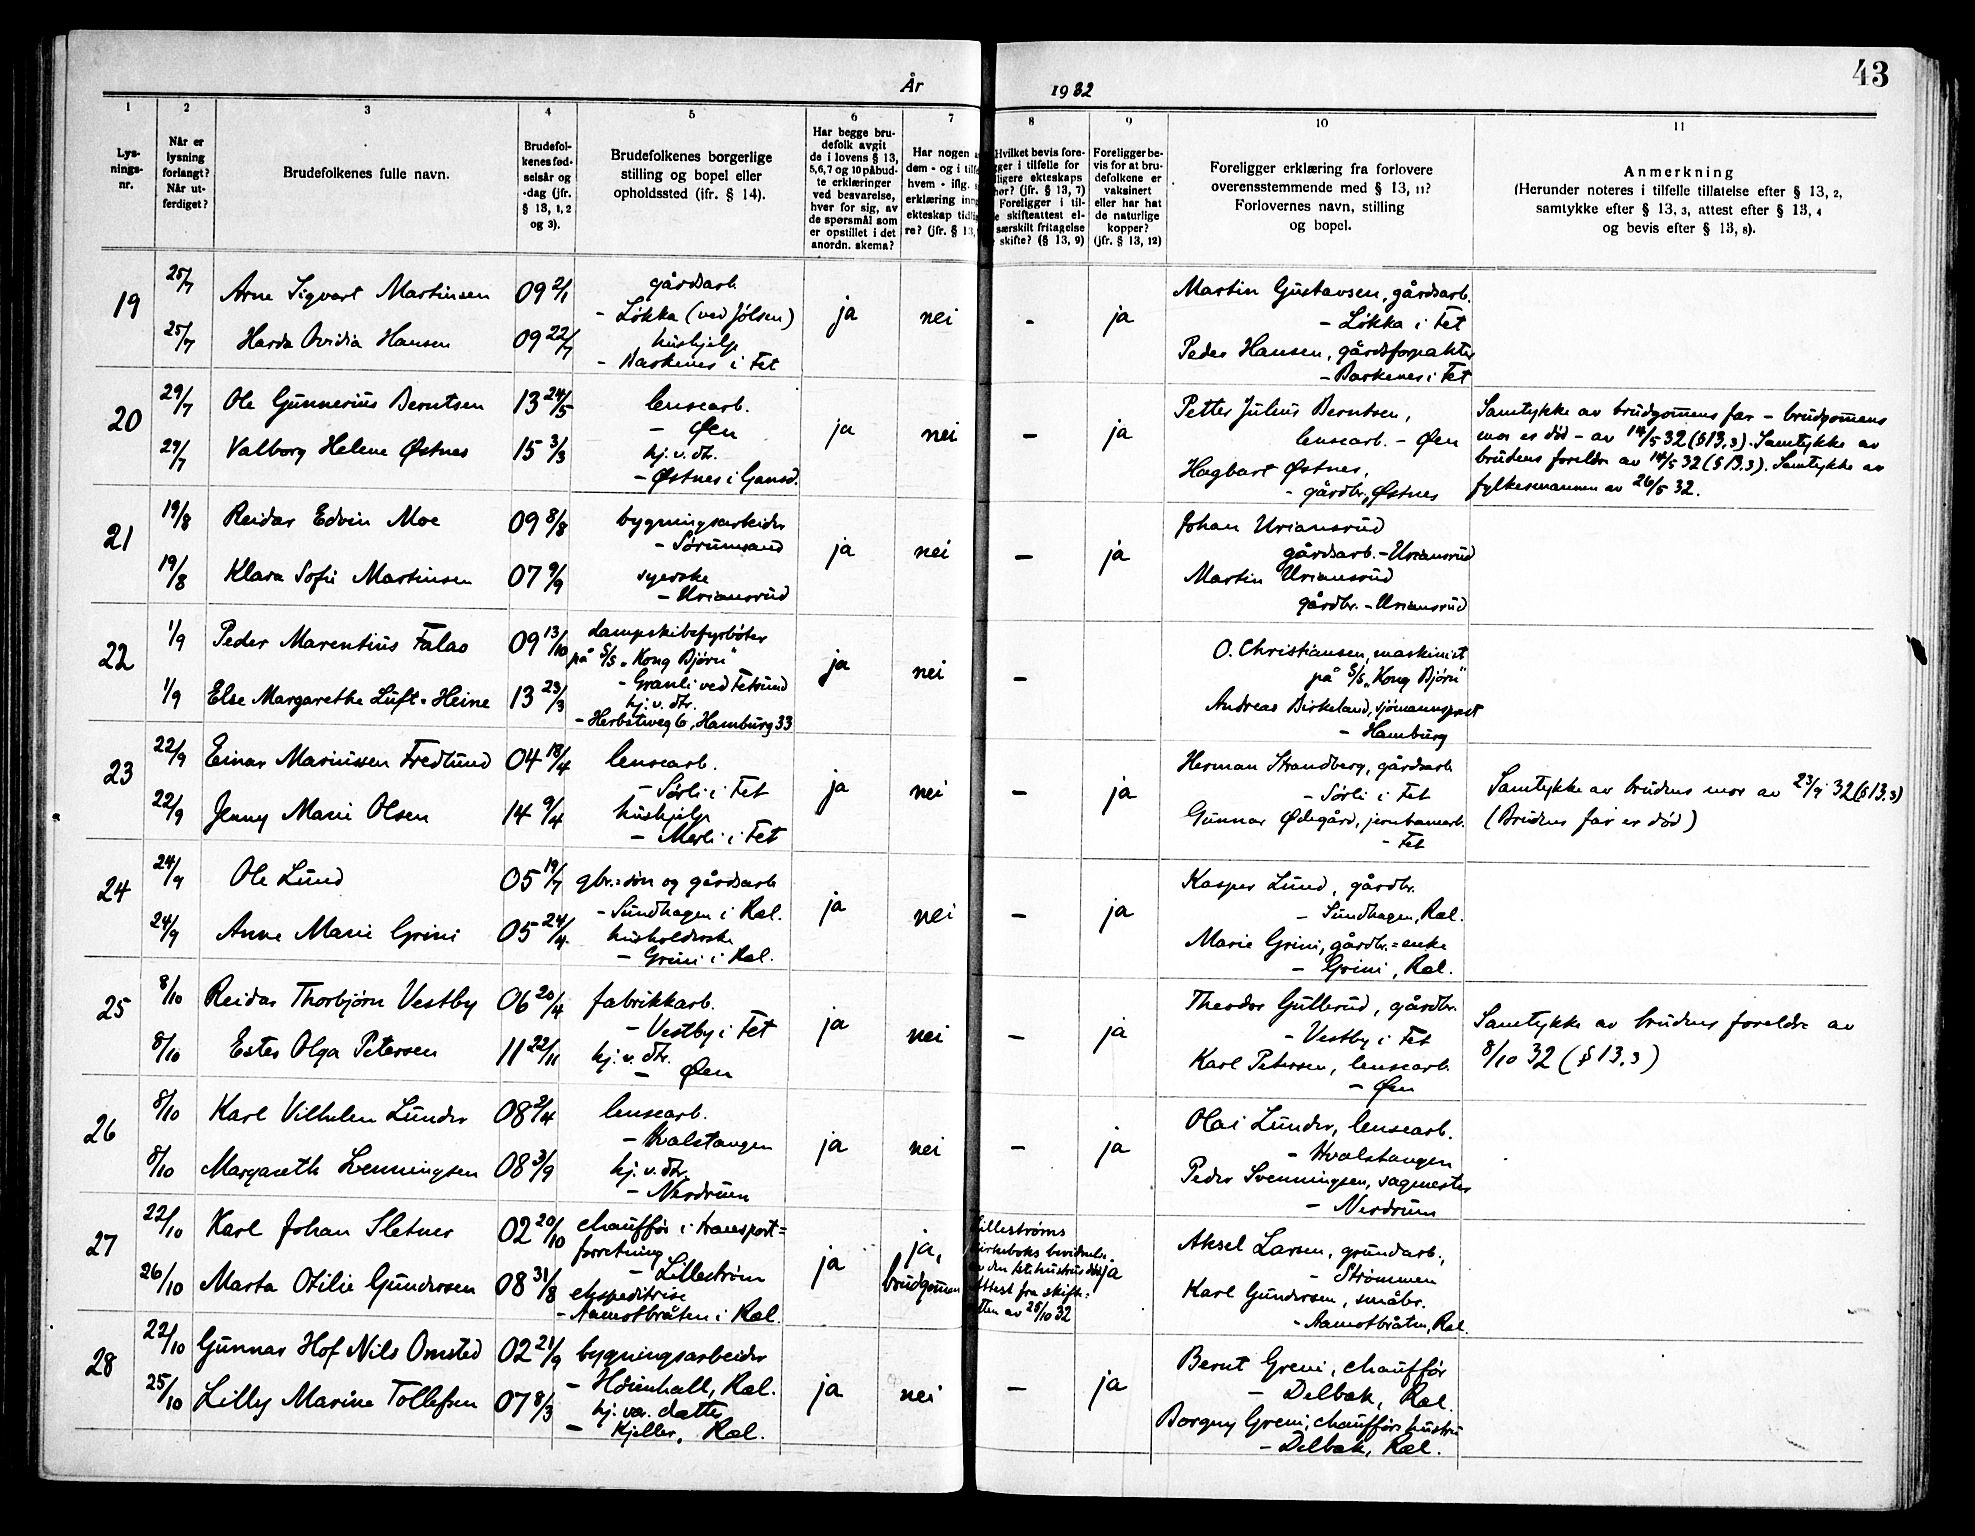 År 1932
43
1
Lys-
nings-
nr.
2
Når er
lysning
forlangt?
Når ut-
ferdiget?
3
Brudefolkenes fulle navn.
4
Brudefol-
kenes fød-
selsår og
-dag (jfr.
§ 13, 1, 2
og 3).
5
Brudefolkenes borgerlige
stilling og bopel eller
opholdssted (ifr. § 14).
6
Har begge bru-
defolk avgit
de i lovens § 13,
5,6,7 og 10 påbud-
te erklæringer
ved besvarelse,
hver for sig, av
de spørsmål som
er opstillet i det
anordn. skema?
7
Har nogen a
dem - og i tilf
hvem - iflg.
erklæring inng
ekteskap tidli
re? (jfr. § 13,
8
Hvilket bevis fore-
gger i tilfelle for
ligere ekteskaps
hør? (jfr. § 13, 7)
Foreligger i til-
e skifteattest el-
særskilt fritagelse
skifte? (§ 13, 9)
9
Foreligger be-
vis for at bru-
defolkene er
vaksinert
eller har hat
de naturlige
kopper?
(jfr. § 13, 12)
10
Foreligger erklæring fra forlovere
overensstemmende med § 13, 11?
Forlovernes navn, stilling
og bopel.
11
Anmerkning
(Herunder noteres i tilfelle tillatelse efter § 13, 2,
samtykke efter § 13, 3, attest efter § 13, 4
og bevis efter § 13, 8).
19
25/7 Arne Sigvart Martinsen 09 2/1 gårdsarb.
- Løkka (ved Jølsen)
25/7 Harda Ovidia Hansen 09 22/7 hushjelp
- Barkenes i Fet
ja nei - ja
Martin Gustavsen, gårdsarb.
- Løkka i Fet
Peder Hansen, gårdsforpakter
- Barkenes i Fet
20
29/7 Ole Gunnerius Berntsen 13 24/5 lensearb.
- Øen
29/7 Valborg Helene Østnes 15 3/3 hj. v. dtr.
- Østnes i Gansd.
ja nei - ja
Petter Julius Berntsen,
lensearb. - Øen
Hagbart Østnes,
- gårdbr., Østnes
Samtykke av brudgomens far - brudgomens
mor er død - av 14/5 32 (§ 13.3). Samtykke av
brudens foreldre av 14/5 32 (§ 13.3). Samtykke av
fylkesmannen av 26/5 32.
21
19/8 Reidar Edvin Moe 09 8/8 bygningsarbeider
- Sørumsand
19/8 Klara Sofie Martinsen 07 9/9 syerske
- Uriansrud
ja nei - ja
Johan Uriansrud
gårdsarb. - Uriansrud
Martin Uriansrud
gårdbr. - Uriansrud
22
1/9 Peder Marentius Falao 09 13/10 dampskibsfyrbøter
på S/S "Kong Bjørn"
- Granli ved Fetsund
1/9 Else Margarethe Luft-Heine 13 23/3 hj. v. dtr.
- Herbstweg 6, Hamburg 33
ja nei -
O. Christiansen, maskinist
på S/S "Kong Bjørn"
Andreas Birkeland, sjømannsprest
- Hamburg
23
22/9 Einar Marinusen Fredlund 04 18/4 lensearb.
- Sørli i Fet
22/9 Jenny Marie Olsen 14 9/4 hushjelp
- Merli i Fet
ja nei - ja
Herman Strandberg, gårdsarb.
- Sørli i Fet
Gunnar Ødegård, jernbanearb.
- Fet
Samtykke av brudens mor av 23/9 32 (§ 13.3)
(Brudens far er død)
24
24/9 Ole Lund 05 19/7 gbr.=søn og gårdsarb.
- Sundhagen i Ræl.
24/9 Anne Marie Grini 05 24/4 husholderske
- Grini i Ræl.
ja nei - ja
Kasper Lund, gårdbr.
- Sundhagen, Ræl.
Marie Grini, gårdbr.=enke
- Grini, Ræl.
25
8/10 Reidar Thorbjørn Vestby 06 20/4 fabrikkarb.
- Vestby i Fet
8/10 Ester Olga Petersen 11 22/11 hj. v. dtr.
- Øen
ja nei - ja
Theodor Gullerud, gårdbr.
- Vestby i Fet
Karl Petersen, lensearb.
- Øen
Samtykke av brudens foreldre av
8/10 32 (§ 13.3)
26
8/10 Karl Vilhelm Lunder 08 2/4 lensearb.
- Hvalstangen
8/10 Margareth Svenningsen 08 3/9 hj. v. dtr.
- Nerdrum
ja nei - ja
Olai Lunder, lensearb.
- Hvalstangen
Peder Svenningsen, sagmester
- Nerdrum
27
22/10 Karl Johan Sletner 02 20/10 chauffør i transport=
forretning
- Lillestrøm
26/10 Marta Otilie Gundersen 08 31/8 ekspeditrise
- Aamotbråten i Ræl.
ja ja, brudgomen
Lillestrøms
kirkeboks bevidnelse
av den 1ste hustrus død
Attest fra skifte=
retten av 25/10 32
ja
Aksel Larsen, grundarb.,
- Strømmen
Karl Gundersen, småbr.
- Aamotbråten, Ræl.
28
22/10 Gunnar Hof Nils Omsted 02 21/9 bygningsarbeider
- Høienhall, Ræl.
25/10 Lilly Marine Tollefsen 07 8/3 hj. vær. datter
- Kjeller, Ræl.
ja nei - ja
Bernt Greni, chauffør
- Delbak, Ræl.
Borgny Greni, chaufførs hustru
- Delbak, Ræl.